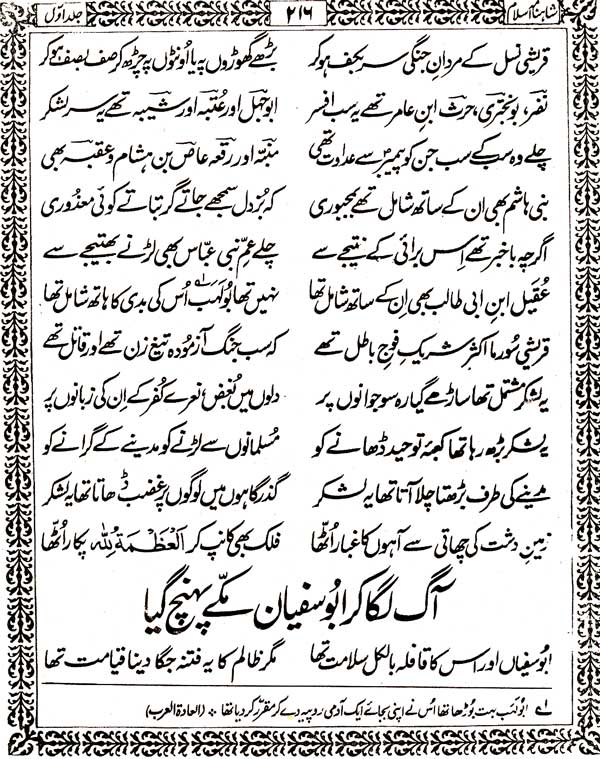 شاہنامۂ اسلام ۲۱۶ جلد اوّل
قریشی نسل کے مردانِ جنگی سر بکف ہو کر بڑھے گھوڑوں پہ یا اونٹوں پہ چڑھ کر صف بصف ہو کر
نفر، بو نختری، حرث ابنِ عامر تھے یہ سب افسر ابو جہل اور عُتبہ اور شیبہ تھے یہ سر لشکر
چلے وہ سب کے سب جن کو پیمبرؐ سے عداوت تھی منبّہ اور رفعہ عاص بن ہشام و عقبہ بھی
بنی ہاشم بھی ان کے ساتھ شامل تھے بمجبوری کہ بُزدل سمجھے جاتے گر بتاتے کوئی معذوری
اگرچہ باخبر تھے اِس برائی کے نتیجے سے چلے عمِّ نبی عبّاس بھی لڑنے بھتیجے سے
عُقیل ابنِ ابی طالب بھی اِن کے ساتھ شامل تھا نہیں تھا بُولہب اُس کی بدی کا ہاتھ شامل تھا
قریشی سُورما اکثر شریکِ فوجِ باطل تھے کہ سب جنگ آزمودہ تیغ زن تھے اور قاتل تھے
یہ لشکر مشتمل تھا ساڑھے گیارہ سو جوانوں پر دلوں میں بُغض، نعرے کُفر کے اِن کی زبانوں پر
یہ لشکر بڑھ رہا تھا کعبۂ توحید ڈھانے کو مُسلمانوں سے لڑنے کو مدینے کے گرانے کو
مدینے کی طرف بڑھتا چلا آتا تھا یہ لشکر گذرگاہوں میں لوگوں پر غضب ڈھاتا تھا یہ لشکر
زمینِ دشت کی چھاتی سے آہوں کا غبار اُٹھا فلک بھی کانپ کر اَلْعَظْمَةُ لِلّٰه پکار اُٹھا
آگ لگا کر ابو سفیان مکّے پہنچ گیا
ابو سفیاں اور اس کا قافلہ بالکل سلامت تھا مگر ظالم کا یہ فتنہ جگا دینا قیامت تھا
لہ ابو لہب بہت بوڑھا تھا اُس نے اپنی بجائے ایک آدمی روپیہ دے کر مقرر کر دیا تھا ٭ (العادۃ العرب)